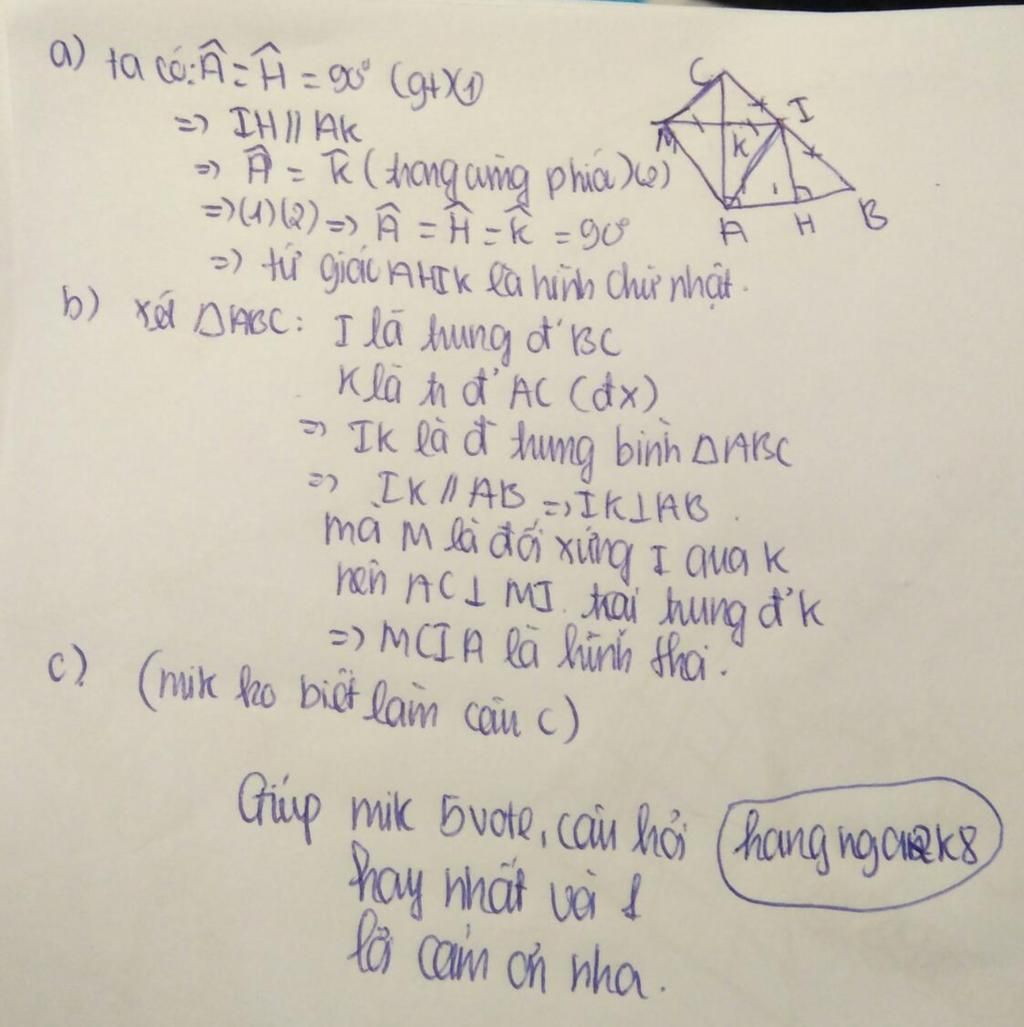 a) ta có: Â = Ĥ = 90° (gt)(1)
=> IH // AK
=> Â = K̂ (trong cùng phía)(2)
=> (1)(2) => Â = Ĥ = K̂ = 90°
=> tứ giác AHIK là hình chữ nhật.
b) xét △ABC: I là trung đ' BC
K là tr đ' AC (đx)
=> IK là đ trung bình △ABC
=> IK // AB => IK⊥AB.
mà M là đối xứng I qua K
nên AC⊥MI. trại trung đ' K
=> MCIA là hình thoi.
c) (mik ko biết làm câu c)
Giúp mik 5 vote, câu hỏi
hay nhất và 1
lời cảm ơn nha.
hangnga2k8
C
I
M
K
A
H
B